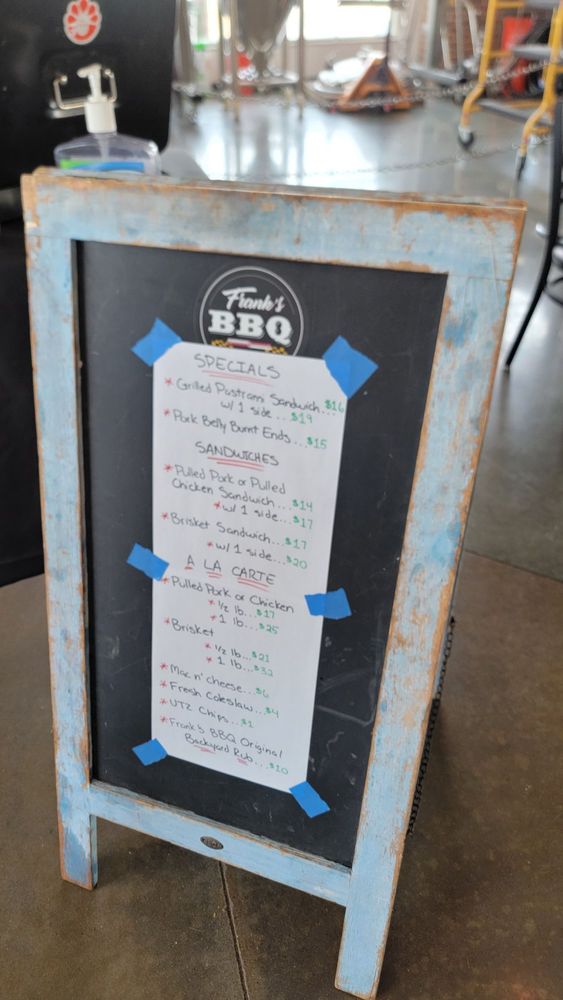 Frank's
BBQ
SPECIALS
* Grilled Pastrami Sandwich...$16
w/ 1 side...$19
* Pork Belly Burnt Ends...$15
SANDWICHES
* Pulled Pork or Pulled
Chicken Sandwich...$14
* w/ 1 side...$17
* Brisket Sandwich...$17
* w/ 1 side...$20
A LA CARTE
* Pulled Pork or Chicken
* 1/2 lb...$17
* 1 lb...$25
* Brisket
* 1/2 lb...$21
* 1 lb...$32
* Mac n' cheese...$6
* Fresh Coleslaw...$4
* UTZ Chips...$1
* Frank's BBQ Original
Backyard Rub...$10